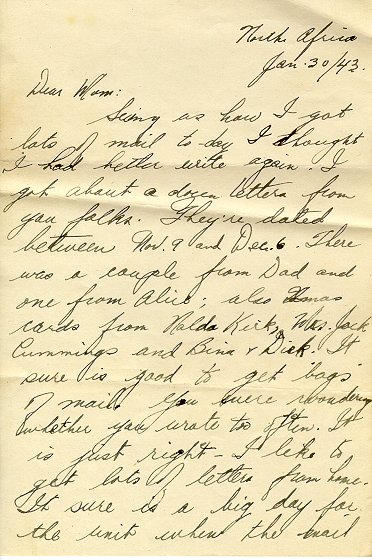 North Africa
Jan. 30/43.
Dear Mom:
Seeing as how I got
lots of mail to-day I thought
I had better write again. I
got about a dozen letters from
you folks. They're dated
between Nov. 9 and Dec. 6. There
was a couple from Dad and
one from Alice; also Xmas
cards from Nalda Kirk, Mrs. Jack
Cummings and Bina & Dick. It
sure is good to get bags
of mail. You were wondering
whether you wrote too often. It
is just right - I like to
get lots of letters from home.
It sure is a big day for
the unit when the mail